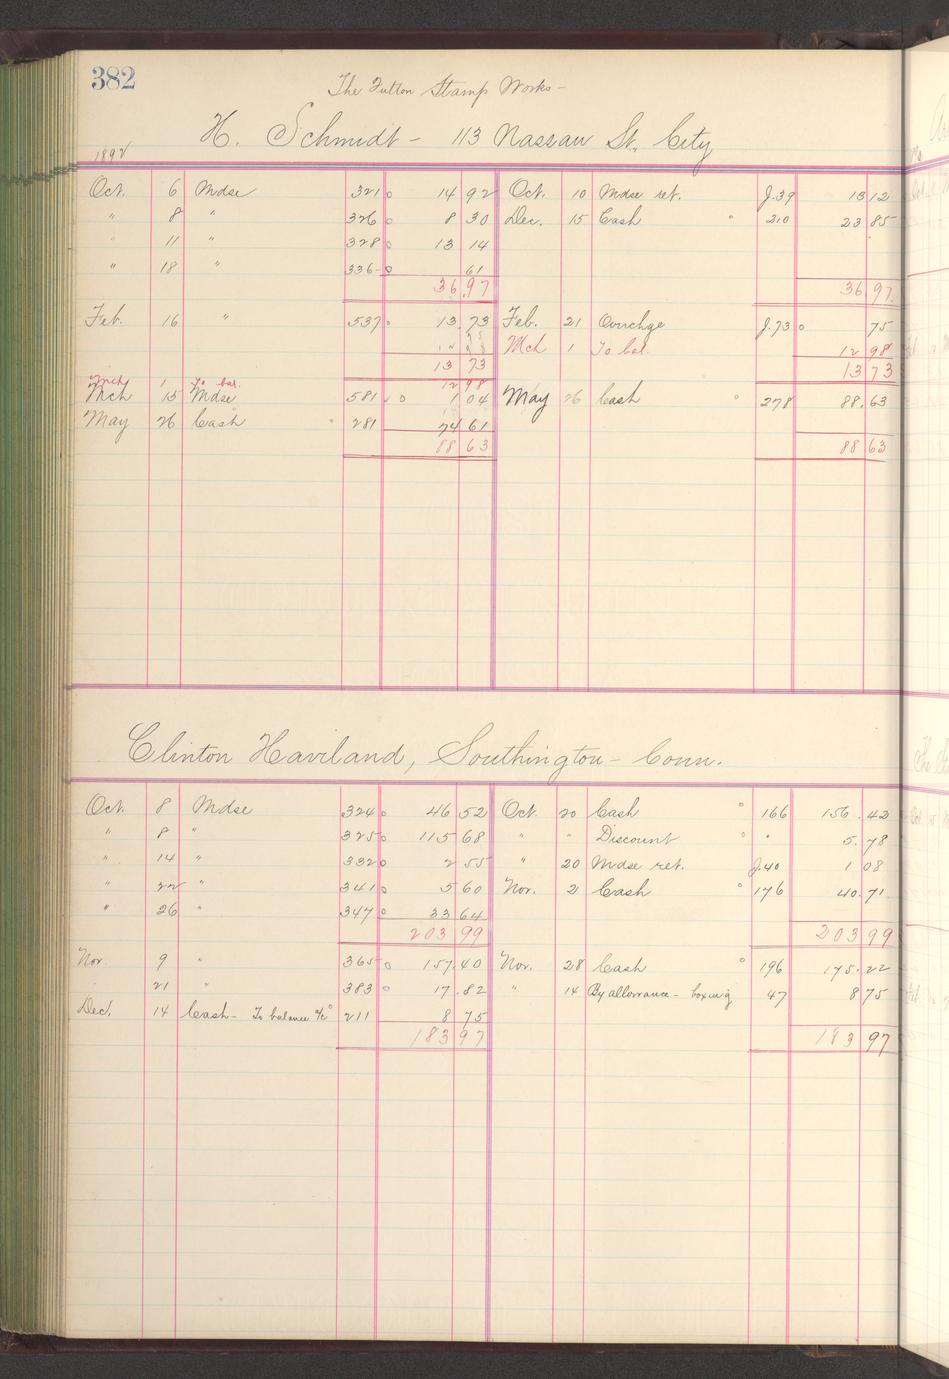 382
The Fulton Stamp Works -
H. Schmidt - 113 Nassau St. City
1892
Oct. 6 Mdse 321 0 14 92 Oct. 10 Mdse ret. J.39 13 12
" 8 " 326 0 8 30 Dec. 15 Cash 210 23 85
" 11 " 328 0 13 14
" 18 " 336 0 61
36.97 36 97
Feb. 16 " 537 0 13.73 Feb. 21 Ovrchge J.73 0 75
Mch 1 To bal. 12 98
13 73 13 73
Mch 1 To bal. 12 98
Mch 15 Mdse 581 0 1 04 May 26 Cash 278 88.63
May 26 Cash 281 74 61
88 63 88 63
Clinton Haviland, Southington - Conn.
Oct. 8 Mdse 324 0 46 52 Oct. 20 Cash 166 156.42
" 8 " 325 0 115 68 " " Discount " 5.78
" 14 " 332 0 2 55 " 20 Mdse ret. J.40 1 08
" 22 " 341 0 5 60 Nov. 2 Cash 176 40.71
" 26 " 347 0 33 64
203 99 203 99
Nov 9 " 365 0 157.40 Nov. 28 Cash 196 175.22
21 " 383 0 17.82 " 14 By allowance - boxing 47 8 75
Dec. 14 Cash - To balance a/c 211 8 75
183 97 183 97